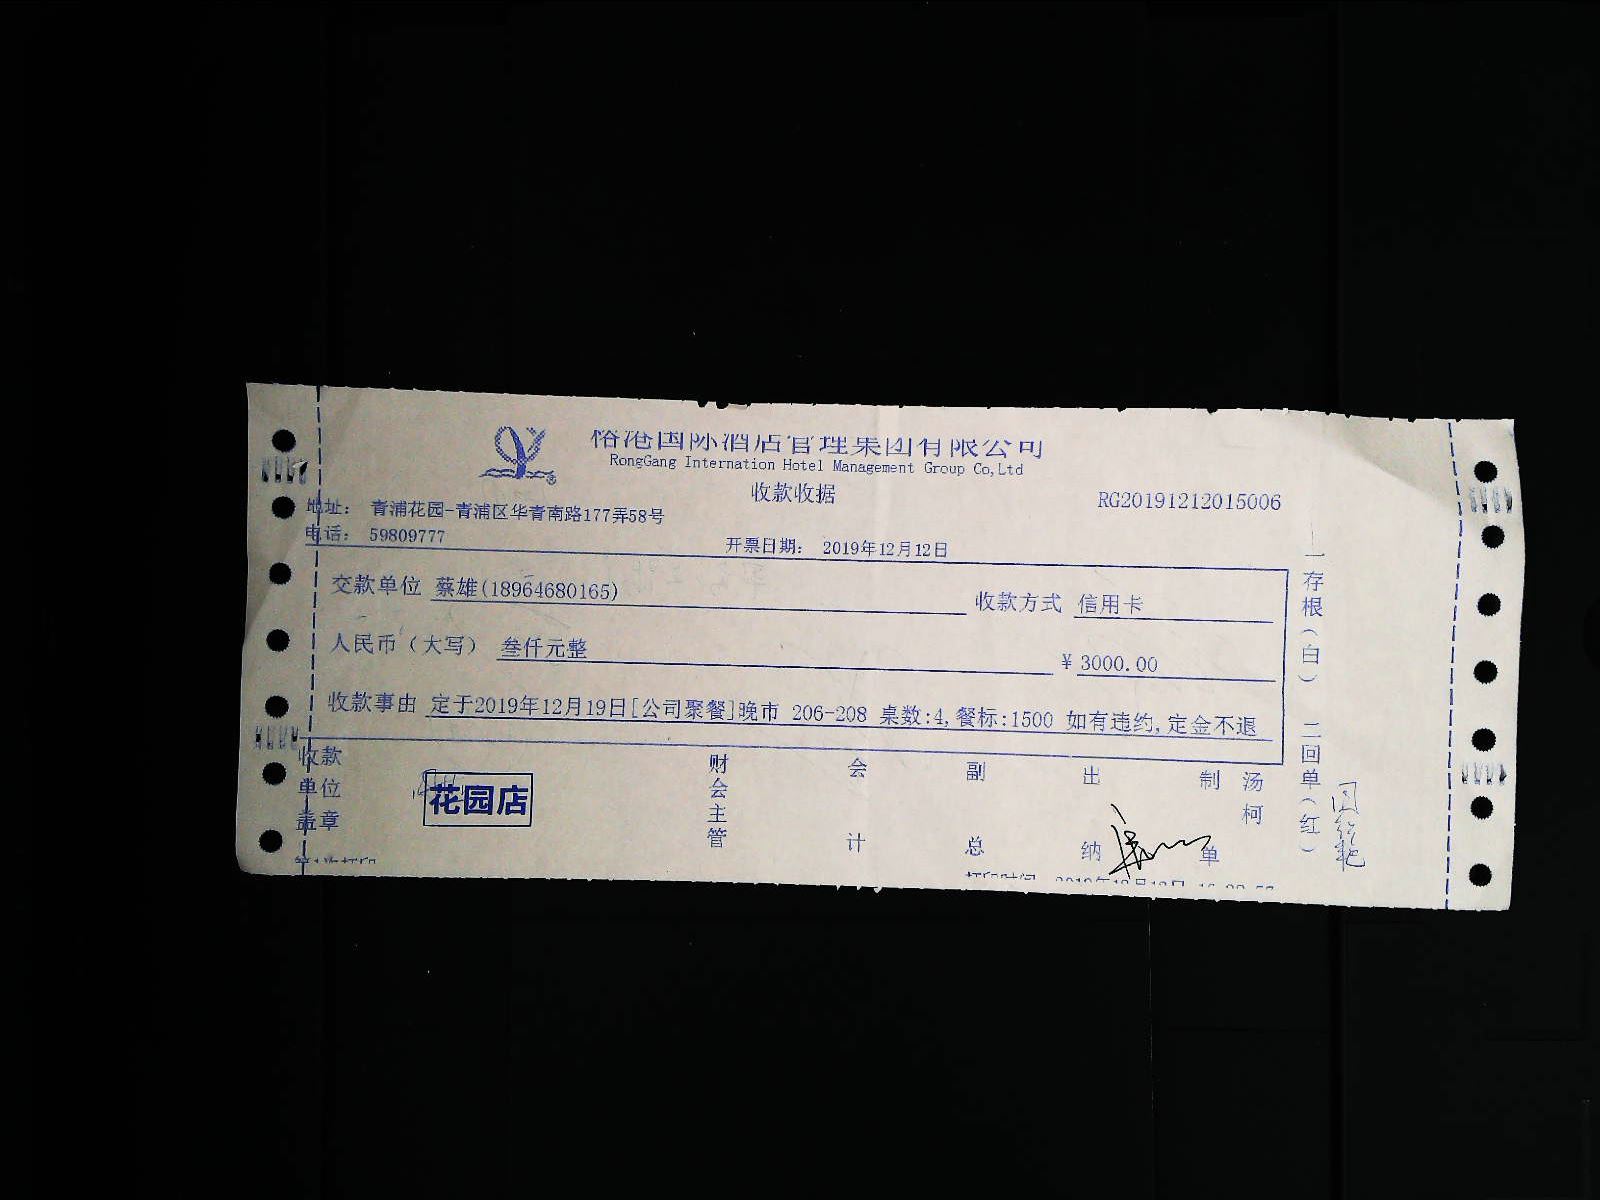 榕港国际酒店管理集团有限公司
RongGang Internation Hotel Management Group Co,Ltd
收款收据
RG20191212015006
地址： 青浦花园-青浦区华青南路177弄58号
电话： 59809777
开票日期： 2019年12月12日
交款单位 蔡雄(18964680165)
收款方式 信用卡
人民币（大写） 叁仟元整
¥ 3000.00
收款事由 定于2019年12月19日[公司聚餐]晚市 206-208 桌数:4,餐标:1500 如有违约,定金不退
收款单位盖章
花园店
财会主管
会计
副总
出纳
制单
汤柯
一存根（白） 二回单（红）